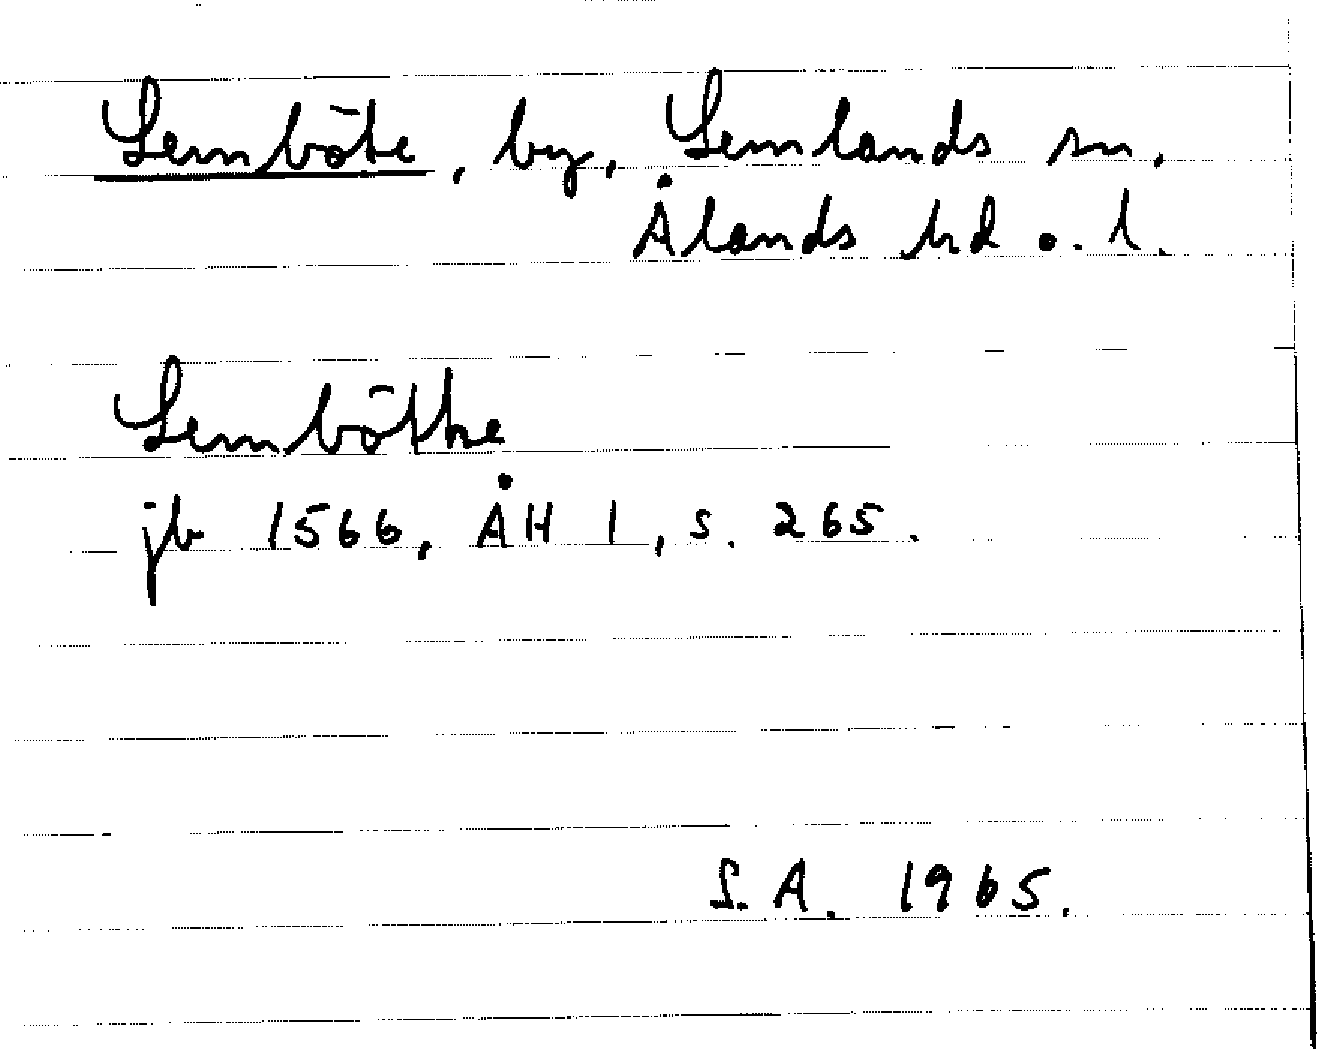 Lemböte, by, Lemlands sn,
Ålands hd o. l.
Lembôthe
jb 1566, ÅH 1, s. 265.
L.A. 1965.